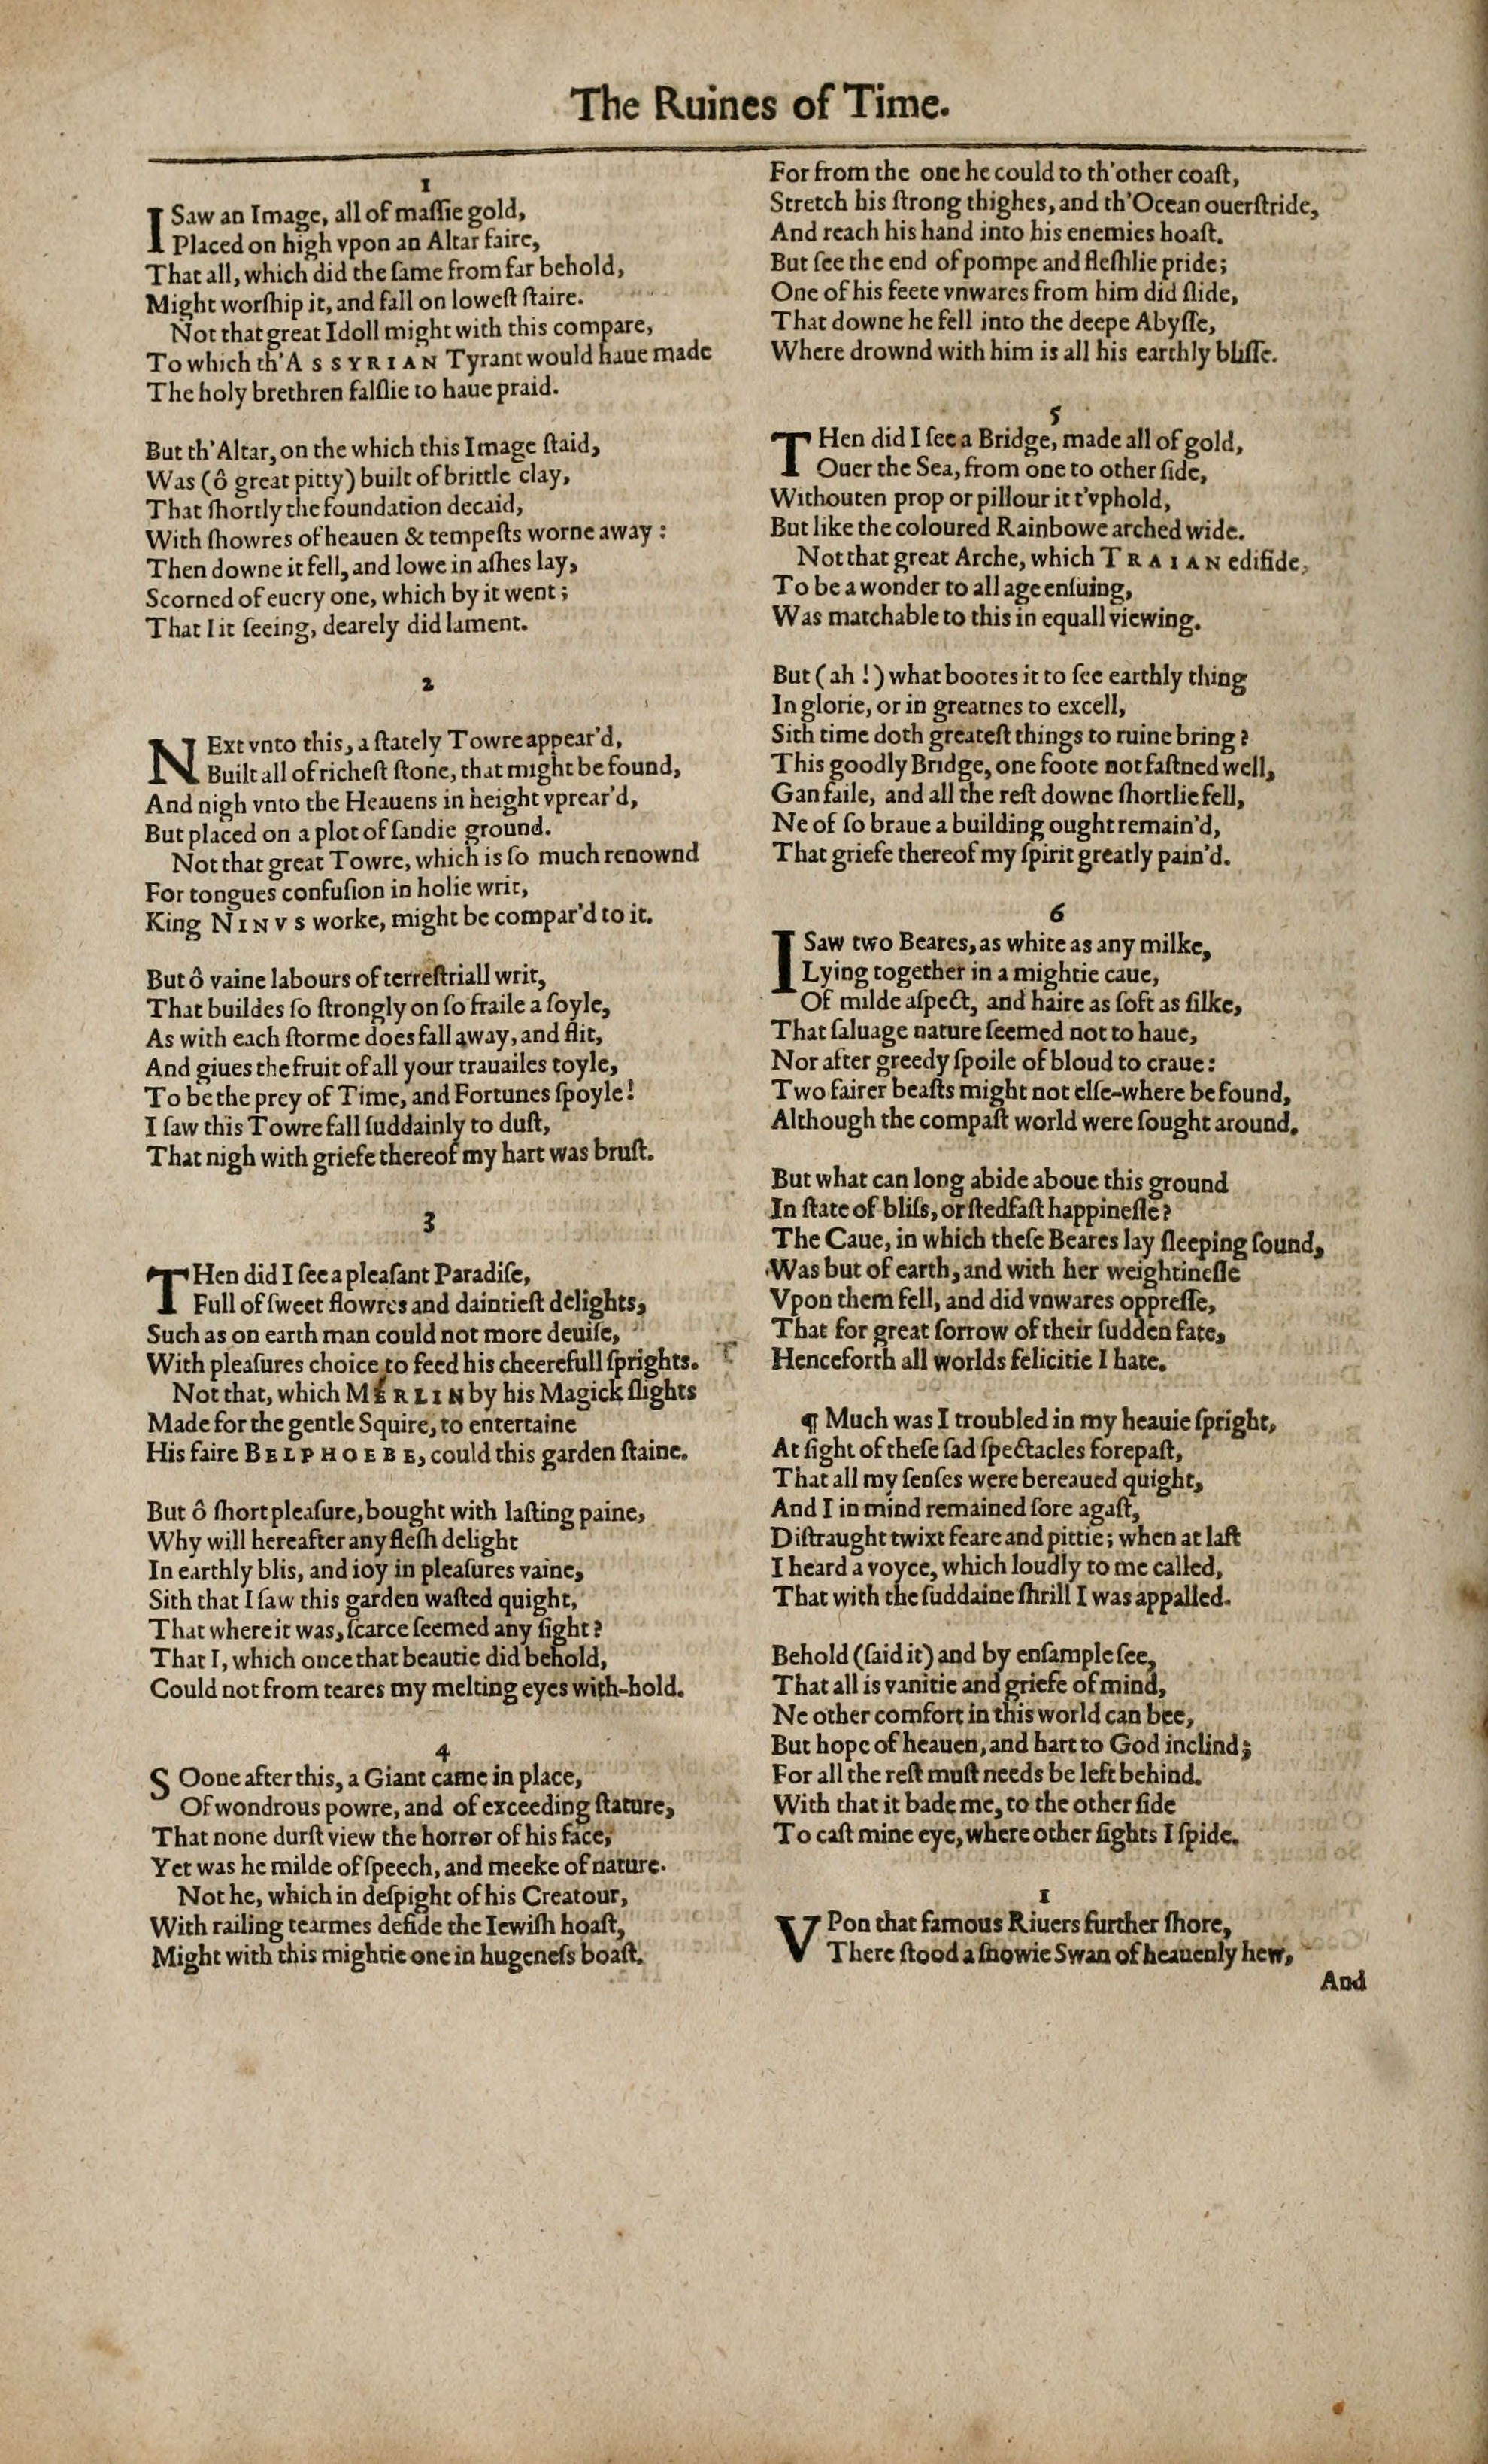 The Ruines of Time.
1
I Saw an Image, all of maſſie gold,
Placed on high vpon an Altar faire,
That all, which did the ſame from far behold,
Might worſhip it, and fall on loweſt ſtaire.
Not that great Idoll might with this compare,
To which th'ASSYRIAN Tyrant would haue made
The holy brethren falſlie to haue praid.
But th'Altar, on the which this Image ſtaid,
Was (ô great pitty) built of brittle clay,
That ſhortly the foundation decaid,
With ſhowres of heauen & tempeſts worne away:
Then downe it fell, and lowe in aſhes lay,
Scorned of euery one, which by it went;
That I it ſeeing, dearely did lament.
2
NExt vnto this, a ſtately Towre appear'd,
Built all of richeſt ſtone, that might be found,
And nigh vnto the Heauens in height vprear'd,
But placed on a plot of ſandie ground.
Not that great Towre, which is ſo much renownd
For tongues confuſion in holie writ,
King NINVS worke, might be compar'd to it.
But ô vaine labours of terreſtriall writ,
That buildes ſo ſtrongly on ſo fraile a ſoyle,
As with each ſtorme does fall away, and flit,
And giues the fruit of all your trauailes toyle,
To be the prey of Time, and Fortunes ſpoyle!
I ſaw this Towre fall ſuddainly to duſt,
That nigh with griefe thereof my hart was bruſt.
3
THen did I ſee a pleaſant Paradiſe,
Full of ſweet flowres and daintieſt delights,
Such as on earth man could not more deuiſe,
With pleaſures choice to feed his cheerefull ſprights.
Not that, which MERLIN by his Magick ſlights
Made for the gentle Squire, to entertaine
His faire BELPHOEBE, could this garden ſtaine.
But ô ſhort pleaſure, bought with laſting paine,
Why will hereafter any fleſh delight
In earthly blis, and ioy in pleaſures vaine,
Sith that I ſaw this garden waſted quight,
That where it was, ſcarce ſeemed any ſight?
That I, which once that beautie did behold,
Could not from teares my melting eyes with-hold.
4
SOone after this, a Giant came in place,
Of wondrous powre, and of exceeding ſtature,
That none durſt view the horror of his face,
Yet was he milde of ſpeech, and meeke of nature.
Not he, which in deſpight of his Creatour,
With railing tearmes defide the Iewiſh hoaſt,
Might with this mightie one in hugeneſs boaſt.
For from the one he could to th'other coaſt,
Stretch his ſtrong thighes, and th'Ocean ouerſtride,
And reach his hand into his enemies hoaſt.
But ſee the end of pompe and fleſhlie pride;
One of his feete vnwares from him did ſlide,
That downe he fell into the deepe Abyſſe,
Where drownd with him is all his earthly bliſſe.
5
THen did I ſee a Bridge, made all of gold,
Ouer the Sea, from one to other ſide,
Withouten prop or pillour it t'vphold,
But like the coloured Rainbowe arched wide.
Not that great Arche, which TRAIAN edifide,
To be a wonder to all age enſuing,
Was matchable to this in equall viewing.
But (ah!) what bootes it to ſee earthly thing
In glorie, or in greatnes to excell,
Sith time doth greateſt things to ruine bring?
This goodly Bridge, one foote not faſtned well,
Gan faile, and all the reſt downe ſhortlie fell,
Ne of ſo braue a building ought remain'd,
That griefe thereof my ſpirit greatly pain'd.
6
I Saw two Beares, as white as any milke,
Lying together in a mightie caue,
Of milde aſpect, and haire as ſoft as ſilke,
That ſaluage nature ſeemed not to haue,
Nor after greedy ſpoile of bloud to craue:
Two fairer beaſts might not elſe-where be found,
Although the compaſt world were ſought around.
But what can long abide aboue this ground
In ſtate of bliſs, or ſtedfaſt happineſſe?
The Caue, in which theſe Beares lay ſleeping ſound,
Was but of earth, and with her weightineſſe
Vpon them fell, and did vnwares oppreſſe,
That for great ſorrow of their ſudden fate,
Henceforth all worlds felicitie I hate.
¶ Much was I troubled in my heauie ſpright,
At ſight of theſe ſad ſpectacles forepaſt,
That all my ſenſes were bereaued quight,
And I in mind remained ſore agaſt,
Diſtraught twixt feare and pittie; when at laſt
I heard a voyce, which loudly to me called,
That with the ſuddaine ſhrill I was appalled.
Behold (ſaid it) and by enſample ſee,
That all is vanitie and griefe of mind,
Ne other comfort in this world can bee,
But hope of heauen, and hart to God inclind;
For all the reſt muſt needs be left behind.
With that it bade me, to the other ſide
To caſt mine eye, where other ſights I ſpide.
1
VPon that famous Riuers further ſhore,
There ſtood a ſnowie Swan of heauenly hew,
And